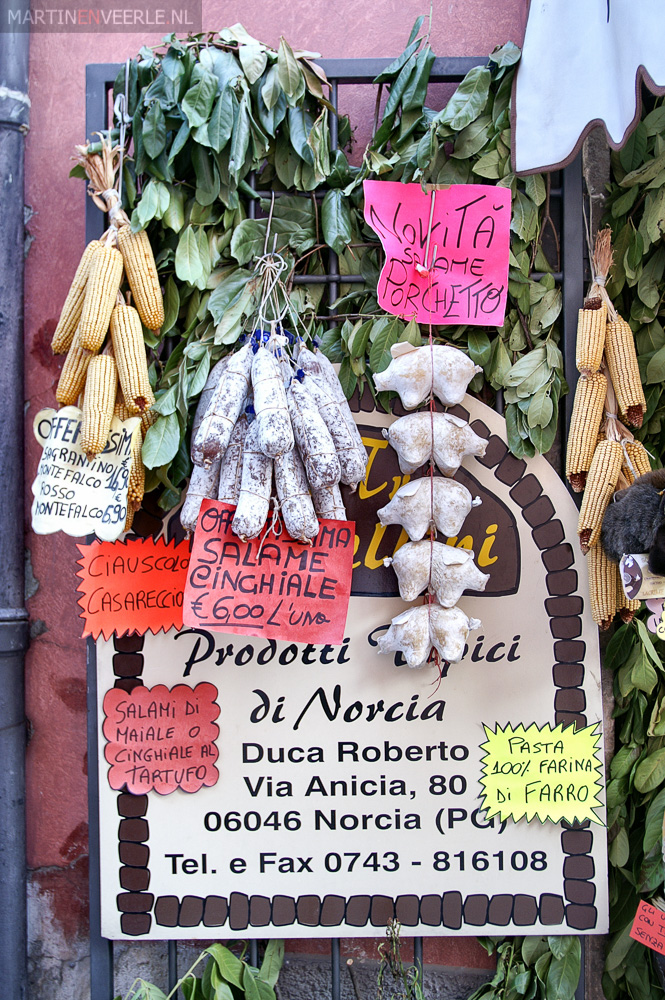 MARTINENVEERLE.NL
NoviTà
SALAME
PORCHETTO
OFFERTISSIM
SAGRANTINO
MONTEFALCO 14,9
ROSSO
MONTEFALCO 6,90
OFFERTISSIMA
SALAME
CINGHIALE
€ 6,00 L'UNA
CIAUSCOLO
CASARECCIO
SALAMI DI
MAIALE O
CINGHIALE AL
TARTUFO
Prodotti Tipici
di Norcia
Duca Roberto
Via Anicia, 80
06046 Norcia (PG)
Tel. e Fax 0743 - 816108
PASTA
100% FARINA
DI FARRO
CON I
SENZA